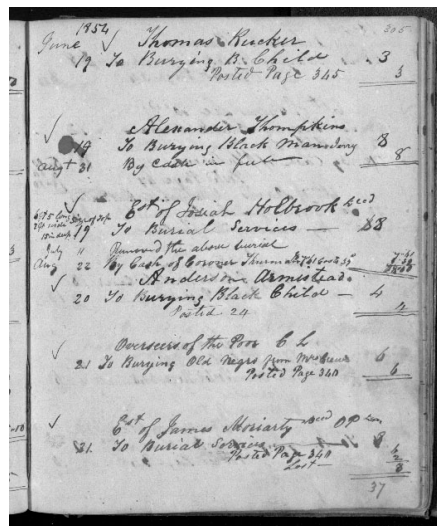 305
1854
June Thomas Rucker
19 To Burying B. Child 3
Posted Page 345 3
Alexander Thompkins
19 To Burying Black man 8
Augt 31 By Cash in full 8
Est of Josiah Holbrook Decd
19 To Burial Services — 8
July 11 Removed the above burial
Aug 22 By Cash of
Anderson Armistead
20 To Burying Black Child — 4
Posted 24 4
Overseers of the Poor C L
21 To Burying Old Negro from Mrs 6
Posted Page 340 6
Est of James Moriarty Decd
21. To Burial Services 8
Posted Page 340
Lost — 8
37